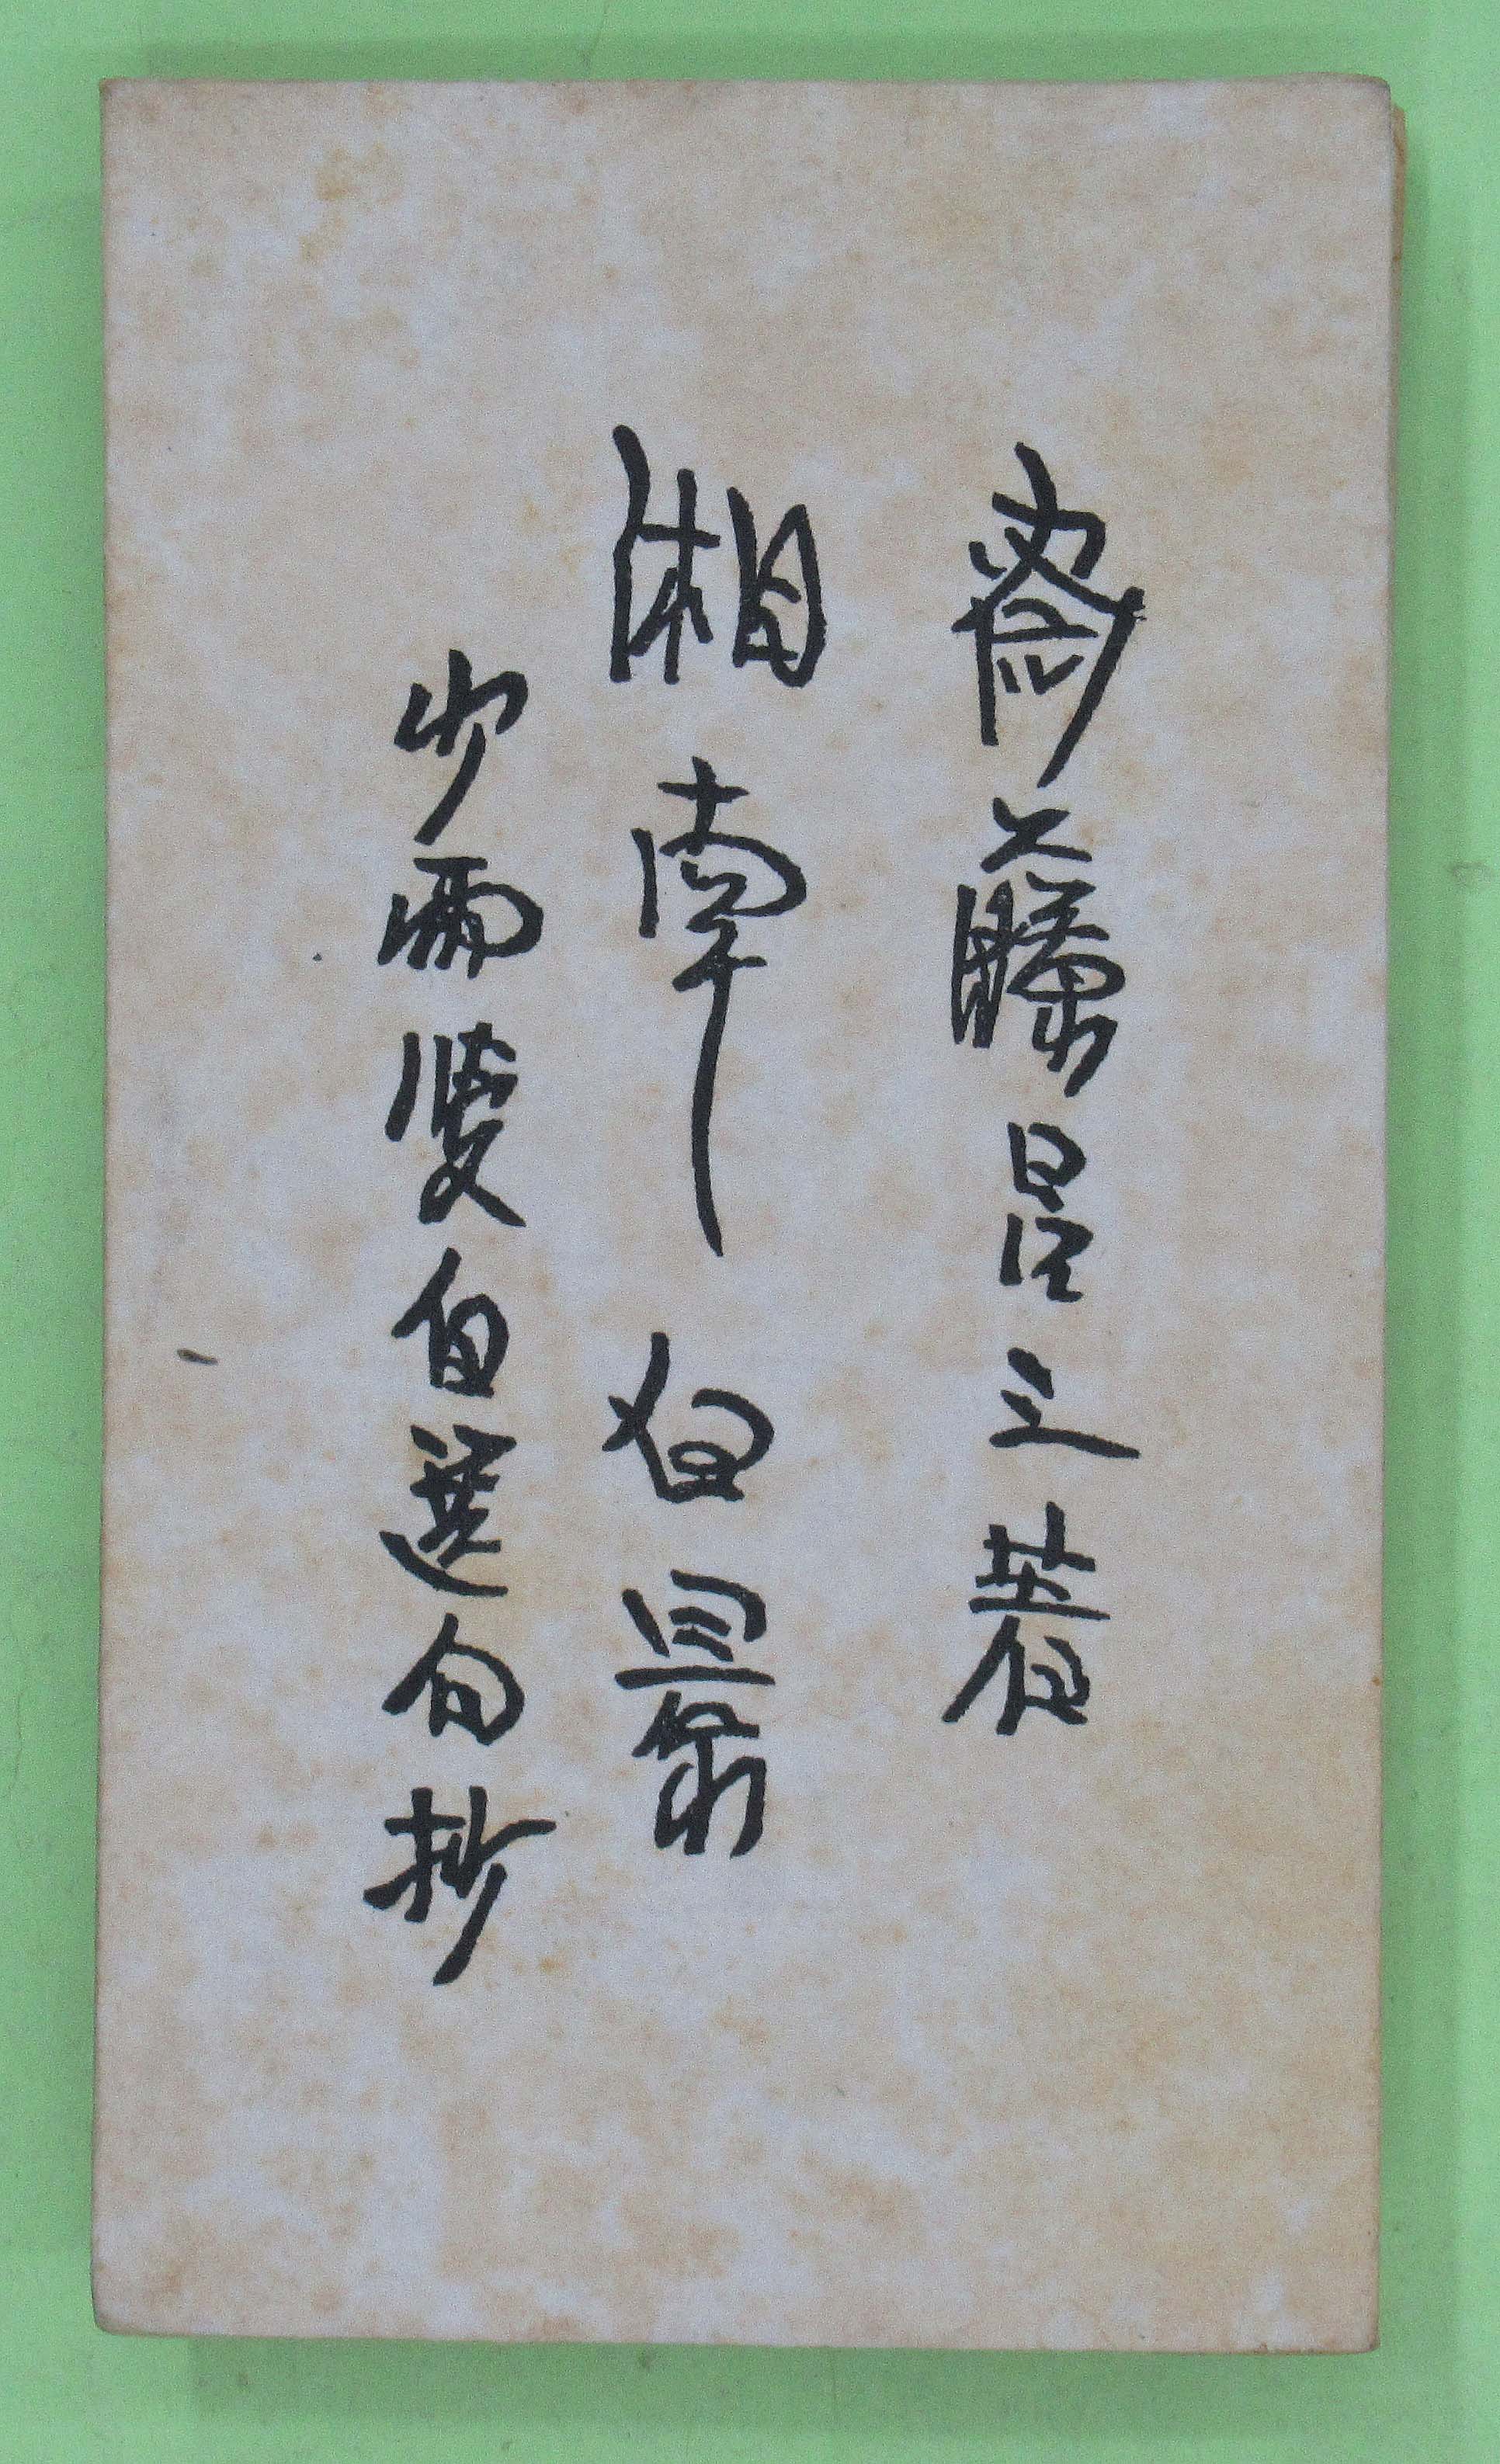 斎藤昌三著
湘南百景
少雨叟自選句抄